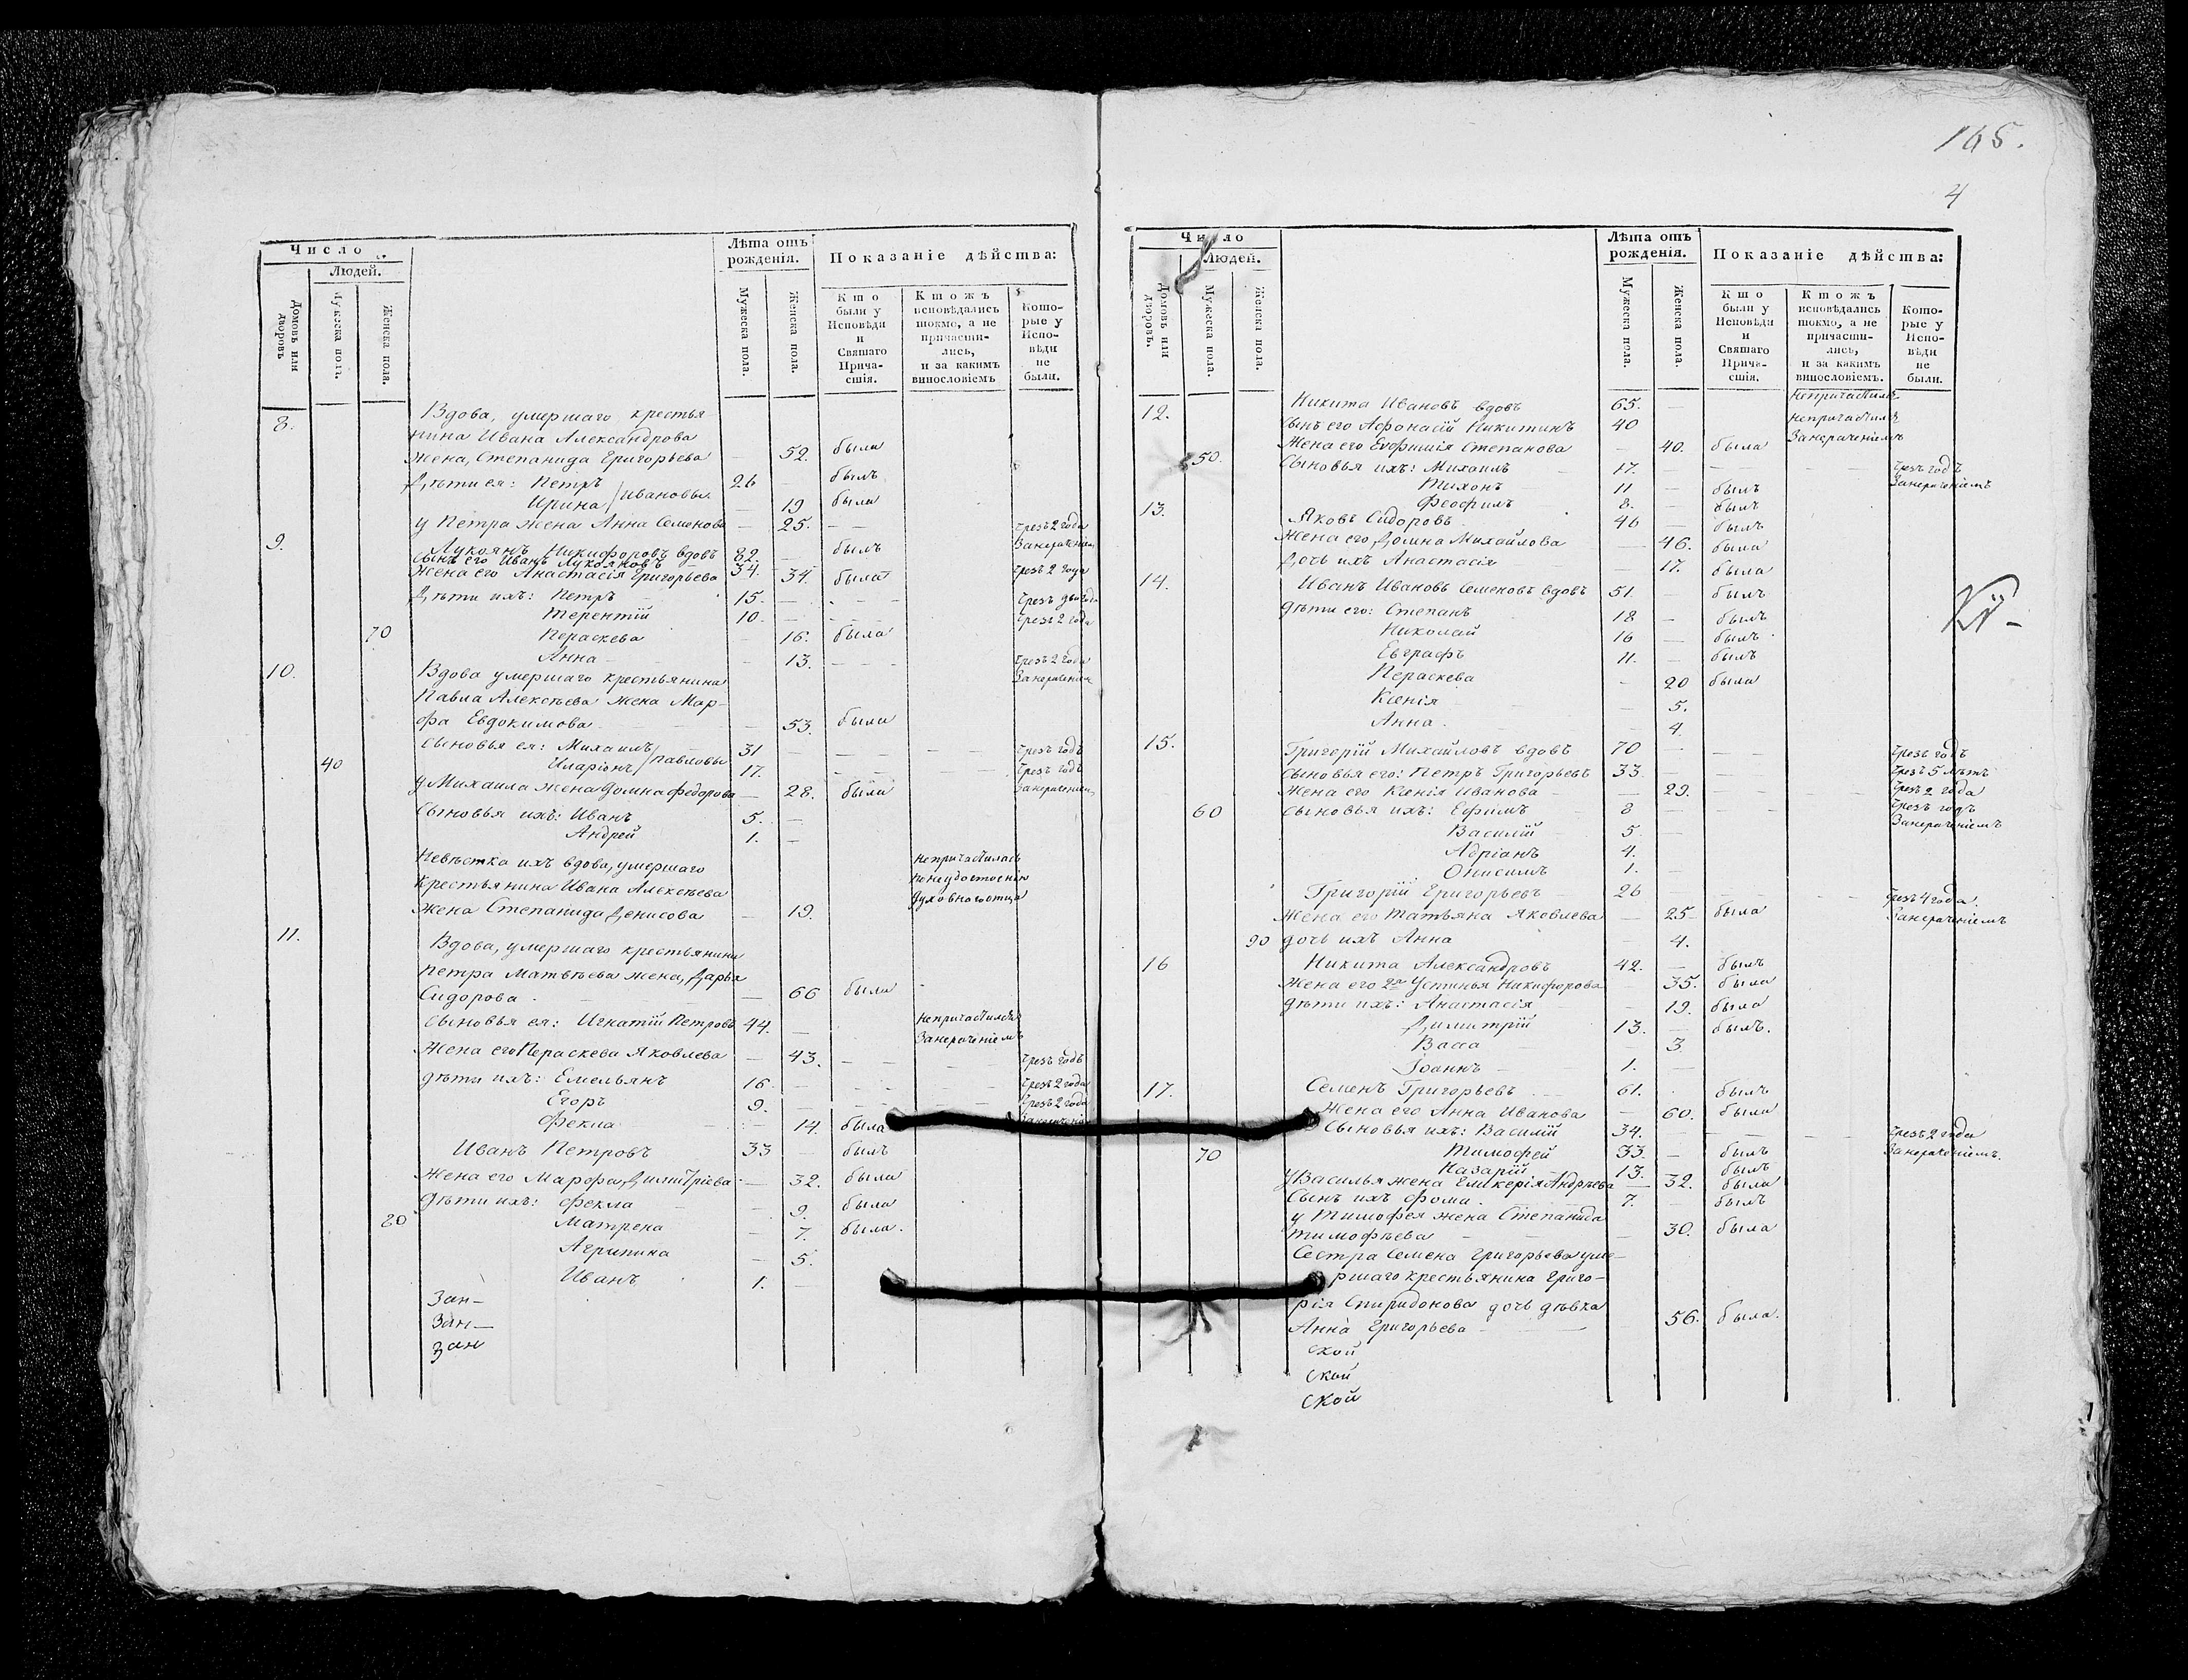 165.
4
Число
Людей.
Домовъ или дворовъ
Мужеска пола.
Женска пола.
Лѣта отъ рожденія.
Мужеска пола.
Женска пола.
Показаніе дѣйства:
Кто были у Исповѣди и Святаго Причастія.
Ктожъ исповѣдались токмо, а не причастились, и за какимъ винословіемъ
Которые у Исповѣди не были.
8. Вдова, умершаго крестья
нина Ивана Александрова
жена, Степанида Григорьева — 52. была
Дѣти ея: Петръ 26 — былъ
Ирина / Ивановы — 19 была
у Петра жена Анна Семенова — 25. — — чрез 2 года
Занерачением
9. Лукоянъ Никифоровъ вдовъ 82. — былъ
сынъ его Иванъ Лукояновъ 34. — чрез 2 года
жена его Анастасія Григорьева 34. была
Дѣти ихъ: Петръ 15. — чрезъ два года
Терентій 10. — чрез 2 года
70 Пераскева — 16. была
Анна — 13. — — чрезъ 2 года
Занерачением
10. Вдова умершаго крестьянина
Павла Алексѣева жена Мар-
фа Евдокимова — 53. была
Сыновья ея: Михаилъ 31 — — чрезъ годъ
40 Иларіонъ / Павловы 17. — — чрезъ годъ
Занерачением
у Михаила жена Домна Федорова — 28. была
Сыновья ихъ: Иванъ 5. —
Андрей 1. —
Невѣстка ихъ вдова, умершаго непричастилась
крестьянина Ивана Алексѣева понеудостоенію
жена Степанида Денисова — 19. духовного отца
11. Вдова, умершаго крестьянина
Петра Матвѣева жена, Дарья
Сидорова — 66 была
Сыновья ея: Игнатій Петровъ 44. — непричастился
Занерачениемъ
Жена его Пераскева Яковлева — 43. — — чрез годъ
дѣти ихъ: Емельянъ 16. — — чрез 2 года
Егоръ 9. — — чрез 2 года
Фекла — 14. была
Иванъ Петровъ 33 — былъ
Жена его Марфа Димитріева — 32. была
Дѣти ихъ: Фекла — 9. была
80 Матрена — 7. была.
Агрипина — 5.
Иванъ 1. —
Зан—
Зан—
Зан
Число
Людей.
Домовъ или дворовъ.
Мужеска пола.
Женска пола.
Лѣта отъ рожденія.
Мужеска пола.
Женска пола.
Показаніе дѣйства:
Кто были у Исповѣди и Святаго Причастія.
Ктожъ исповѣдались токмо, а не причастились, и за какимъ винословіемъ.
Которые у Исповѣди не были.
12. Никита Ивановъ вдовъ 65. — непричастился
Сынъ его Афонасій Никитинъ 40 непричастился
Занерачениемъ
Жена его Евфимія Степанова — 40. была
50. Сыновья ихъ: Михаилъ 17. — — чрезъ годъ
Занерачениемъ
Тихонъ 11 — былъ
Феофилъ 8. — былъ
13. Яковъ Сидоровъ 46 — былъ
Жена его Домна Михайлова — 46. была
Дочь ихъ Анастасія — 17. была
14. Иванъ Ивановъ Семеновъ вдовъ 51. — былъ
дѣти его: Степанъ 18 — былъ
Николай 16 — былъ
Евграфъ 11. — былъ
Пераскева — 20 была
Ксенія — 5.
Анна — 4.
15. Григорій Михайловъ вдовъ 70 — — чрезъ годъ
сыновья его: Петръ Григорьевъ 33 — — чрезъ 5 лѣтъ
Жена его Ксенія Иванова — 29. — — чрез 2 года
60 Сыновья ихъ: Ефимъ 8 — чрезъ годъ
Занерачениемъ
Василій 5. —
Адріанъ 4. —
Онисимъ 1. —
Григорій Григорьевъ 26 — — чрез 4 года.
Занерачениемъ
Жена его Татьяна Яковлева — 25 была
90 дочь ихъ Анна — 4.
16 Никита Александровъ 42. — былъ
Жена его 2я Устинья Никифорова — 35. была
дѣти ихъ: Анастасія — 19. была
Димитрій 13. — былъ.
Васса — 3
Іоаннъ 1. —
17. Семенъ Григорьевъ 61. былъ
Жена его Анна Иванова — 60. была
Сыновья ихъ: Василій 34. — — чрез 2 года
Занерачениемъ.
70 Тимофей 33. — былъ
Назарій 13. былъ
У Василья жена Гликерія Андрѣева — 32. была
Сынъ ихъ Фома. 7. — былъ
у Тимофея жена Степанида
Тимофѣева — 30. была
Сестра Семена Григорьева уме-
ршаго крестьянина Григо-
рія Спиридонова дочь дѣвка
Анна Григорьева — 56. была.
ской
ской
ской